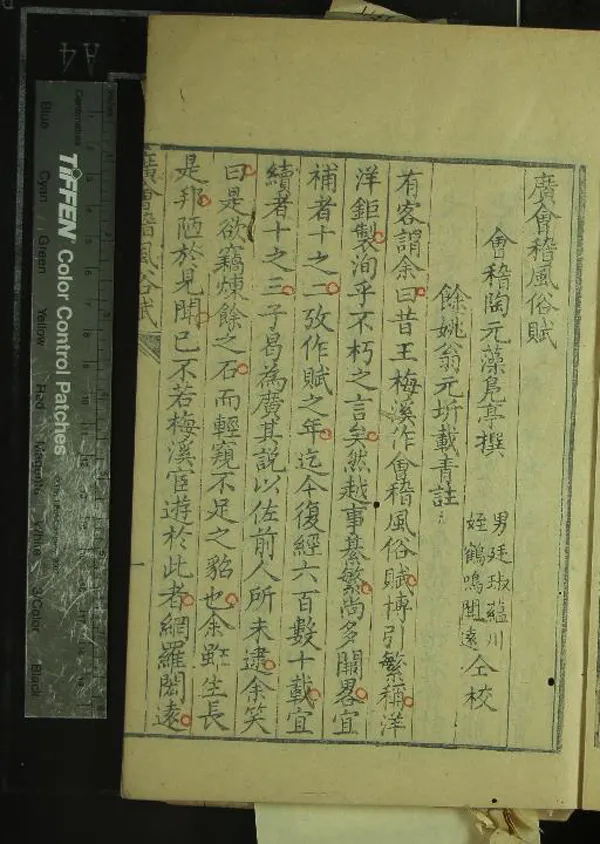 廣會稽風俗賦
會稽陶元藻鳧亭撰
男廷琡藴川
姪鶴鳴聞遠
仝校
餘姚翁元圻載青註
有客謂余曰昔王梅溪作會稽風俗賦博引繁稱洋
洋鉅製洵乎不朽之言矣然越事綦繁尚多闕畧宜
補者十之二攷作賦之年迄今復經六百數十載宜
續者十之三子曷為廣其說以佐前人所未逮余笑
曰是欲竊煉餘之石而輕窺不足之貂也余雖生長
是邦陋於見聞已不若梅溪宦遊於此者網羅閎遠
廣會稽風俗賦
一
A4
Centimetres
TIFFEN Color Control Patches
Blue
Cyan
Green
Yellow
Red
Magenta
White
3/Color
Black